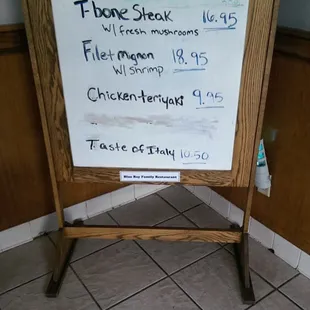 T-bone Steak 16.95
W/fresh mushrooms
Filet mignon 18.95
W/ shrimp
Chicken-teriyaki 9.95
Taste of Italy 10.50
Blue Bay Family Restaurant